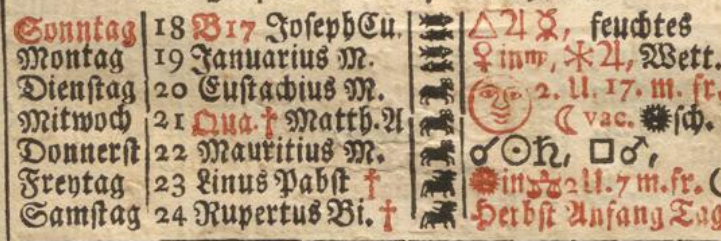 Sonntag 18 B 17 Joseph Cu. △♃☿, feuchtes
Montag 19 Januarius M. ♀ in ♍, ⚹♃, Wett.
Dienſtag 20 Euſtachius M. 2. U. 17. m. fr.
Mitwoch 21 Qua. † Matth. A ☾ vac. ſch.
Donnerſt 22 Mauritius M. ☌☉♄, □♂,
Freytag 23 Linus Pabſt † in 2 U. 7 m. fr. (
Samſtag 24 Rupertus Bi. † Herbſt Anfang Tag